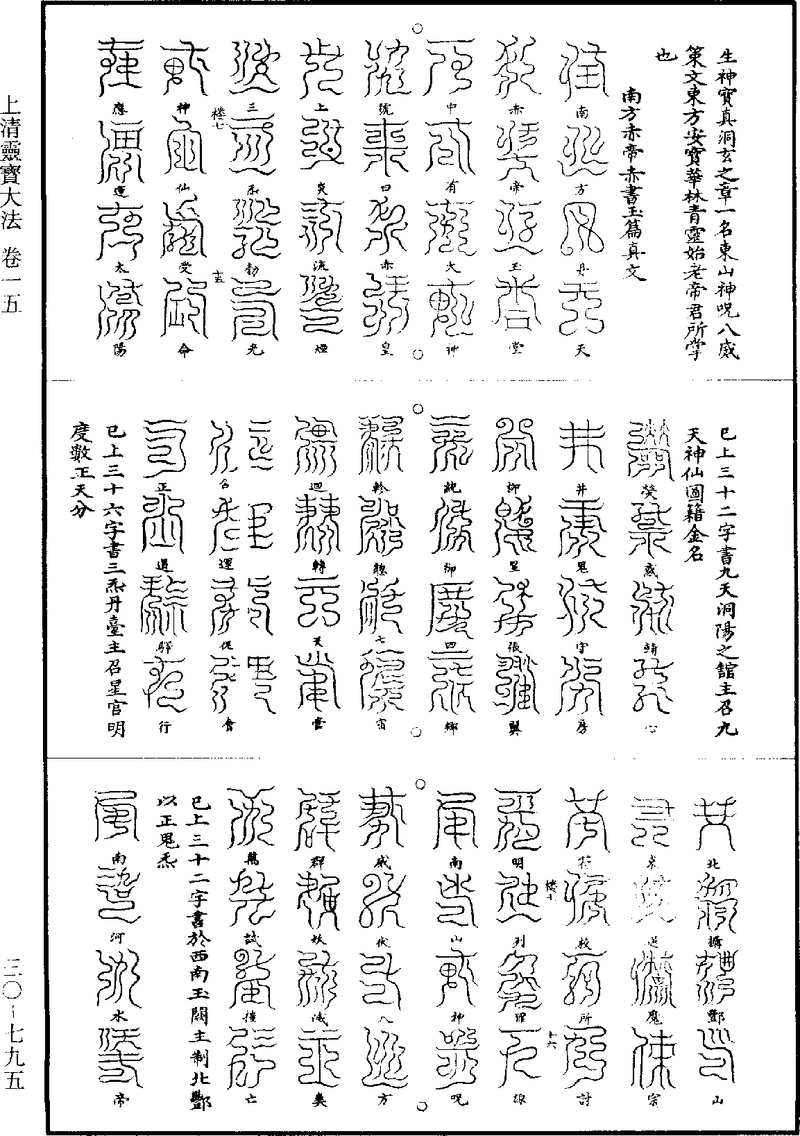 上清靈寶大法 卷一五
三〇-七九五
生神寶真洞玄之章一名東山神呪八威
策文東方安寶華林青靈始老帝君所掌
也
南方赤帝赤書玉篇真文
南方丹天
赤帝玉堂
中有大神
號曰赤皇
上炎流煙
三炁勃光
神仙受命
應運太陽
已上三十二字書九天洞陽之館主召九
天神仙圖籍金名
熒惑輔心
井鬼守房
柳星張翼
統御四鄉
軫總七宿
迴轉天常
召運促會
正道驛行
已上三十六字書三炁丹臺主召星官明
度數正天分
北攝酆山
束送魔宗
符教所討
明列罪源
南山神呪
威伐八方
群妖滅爽
萬試摧亡
已上三十二字書於西南玉闕主制北酆
以正鬼炁
南河水帝